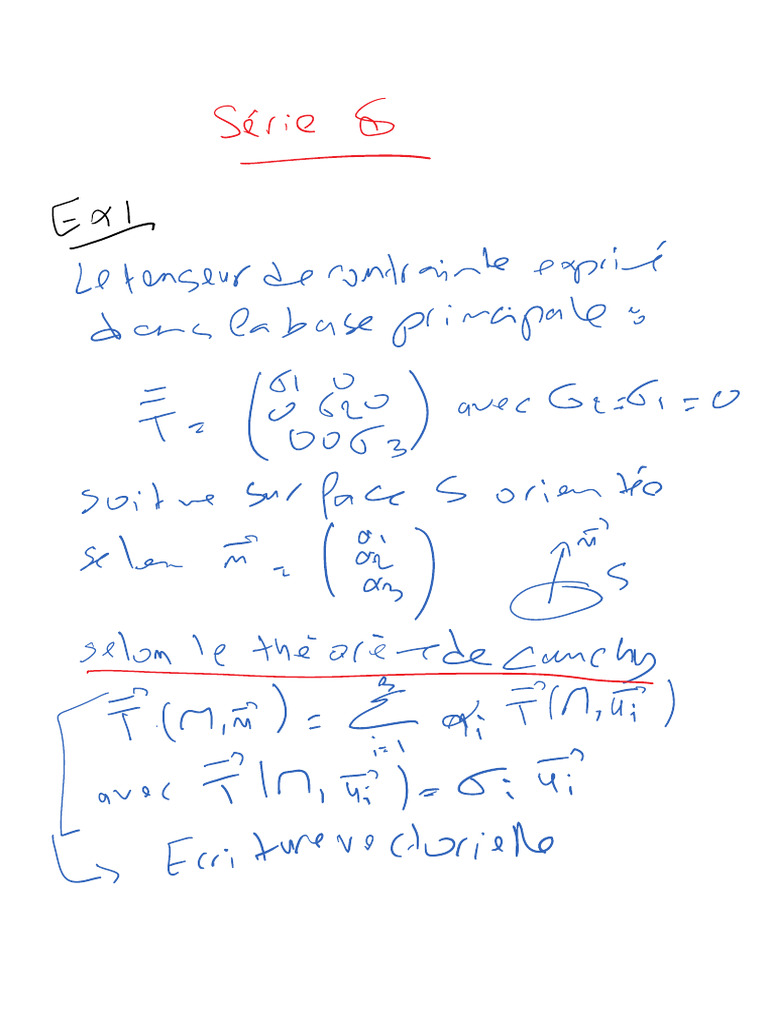 Série 6
Ex1
Le tenseur de contrainte exprimé
dans la base principale :
T = (σ1 0
0 σ2 0
0 0 σ3) avec σ2 = σ1 = 0
soit une surface S orientéo
selon n = (α1
α2
α3)
n
S
selon le théorè de Cauchy
T(M, n) = Σ i=1 3 αi T(M, ui)
avec T(M, ui) = σi ui
↳ Ecriture vectorielle